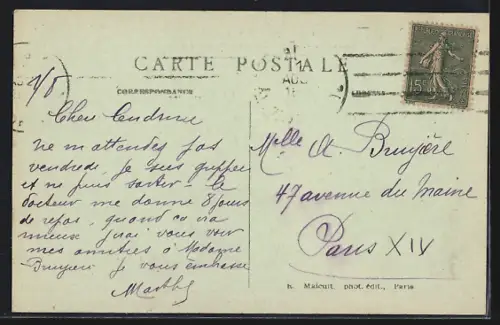 CARTE POSTALE
CORRESPONDANCE
1/8
Chère
ne m'attendez pas
vendredi je suis grippée
et ne puis sortir – le
docteur me donne 8 jours
de repos, quand ça ira
mieux j'irai vous voir
mes amitiés à Madame
Bruyère je vous embrasse
Marthe
Melle A. Bruyère
47 avenue du Maine
Paris XIV
15c
phot. édit., Paris